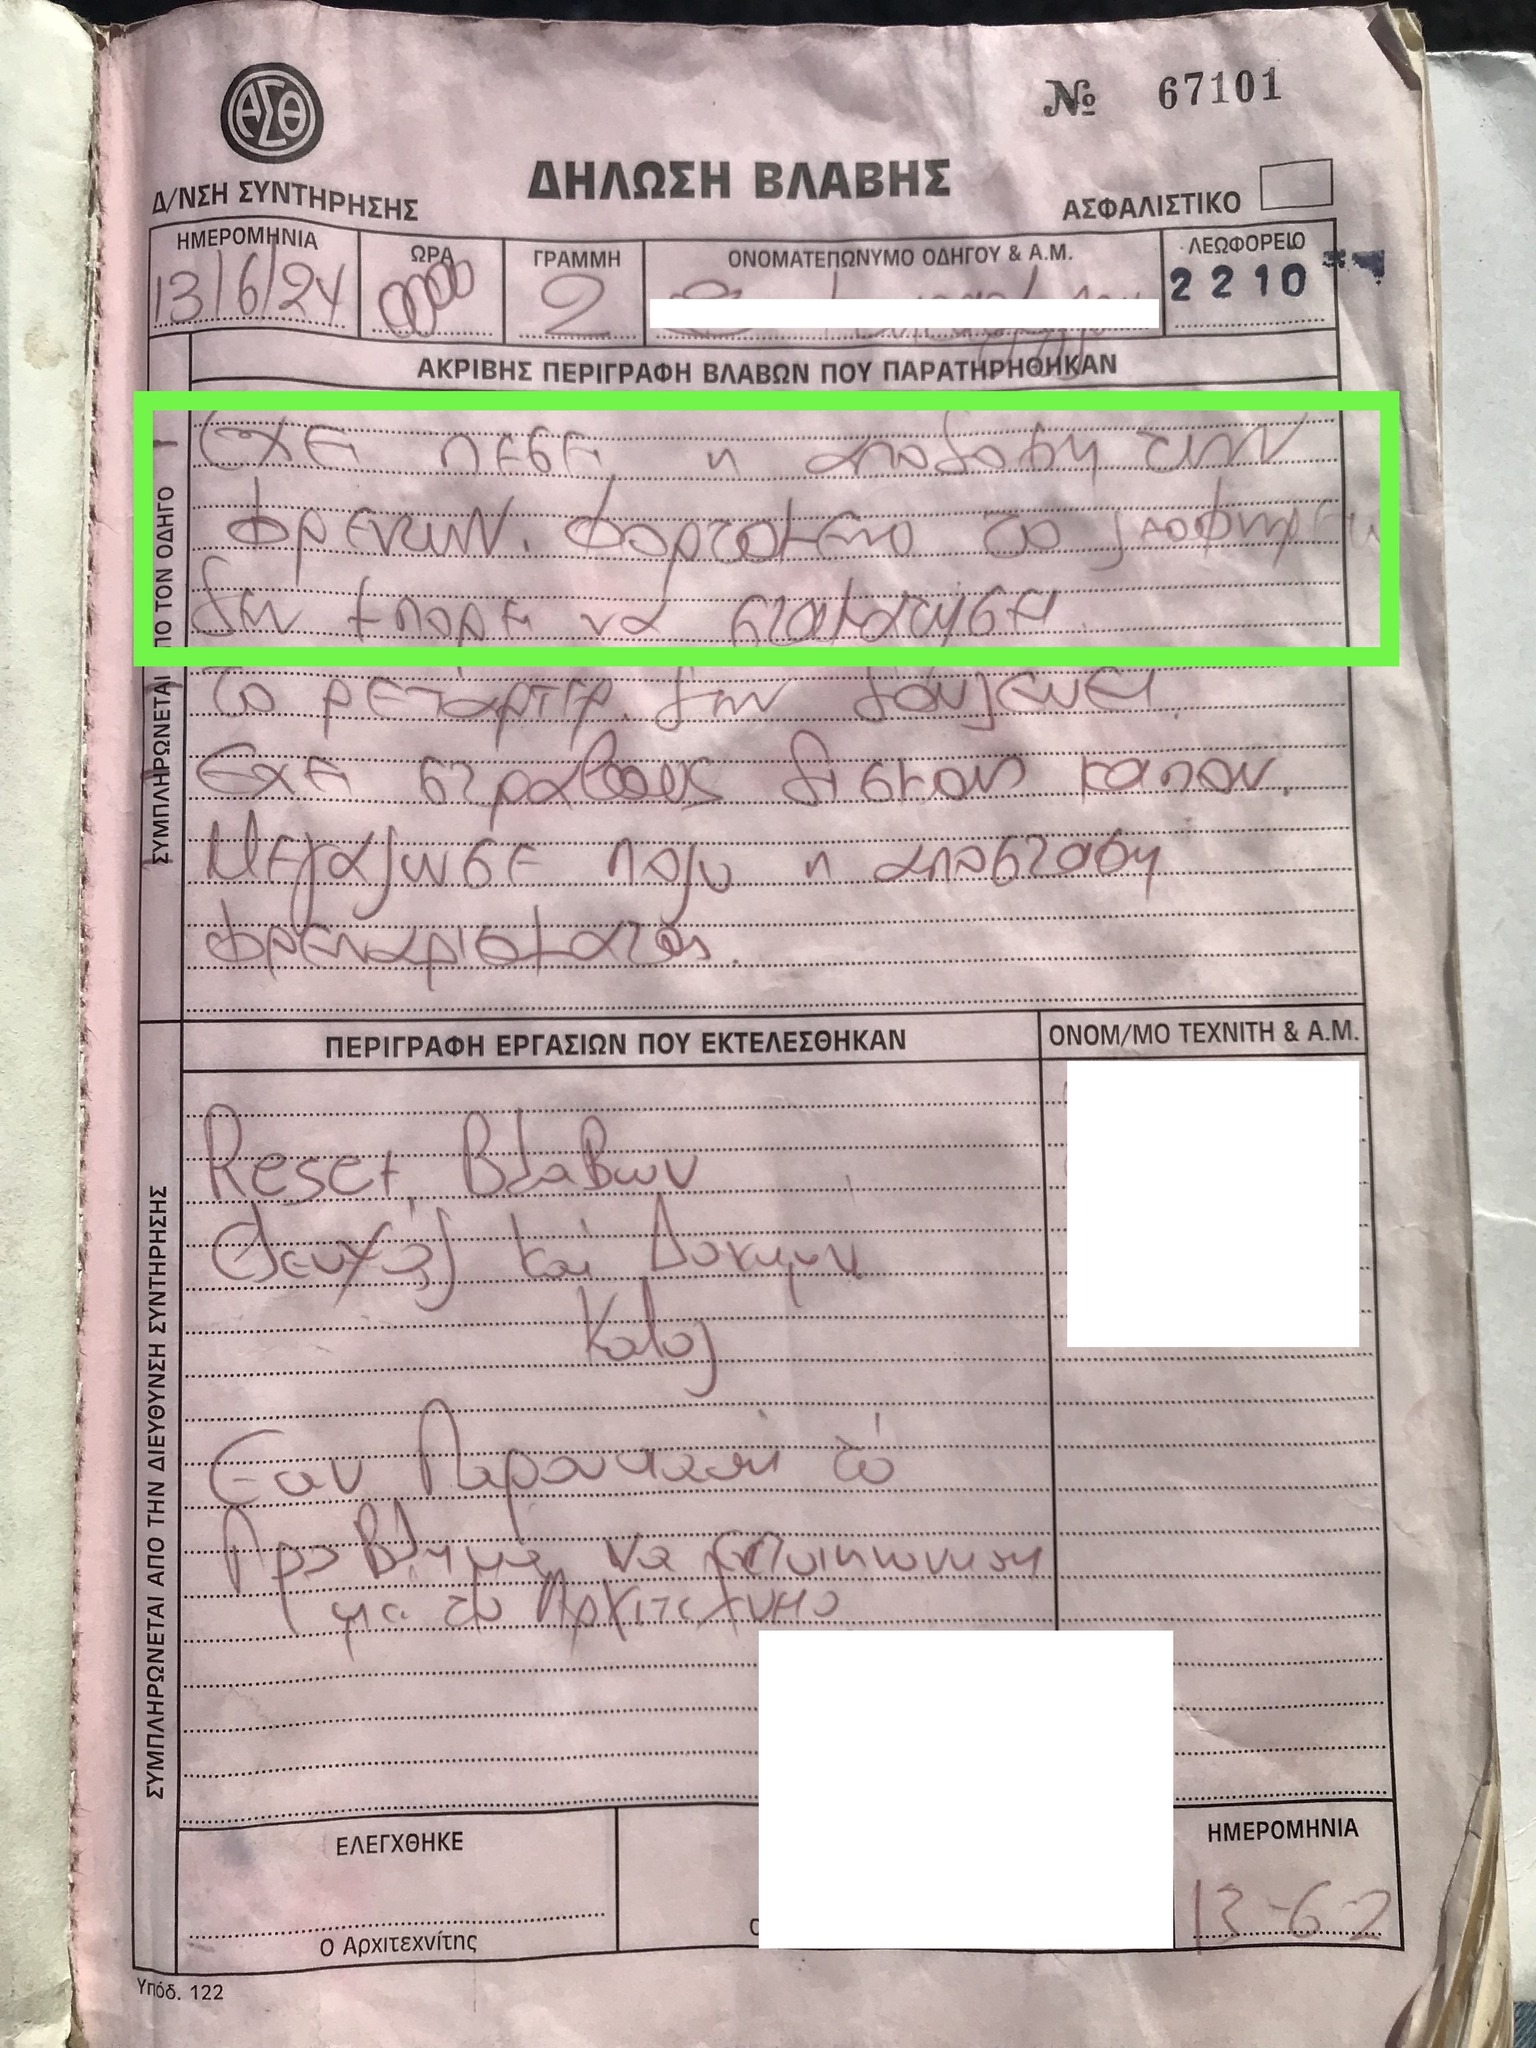 ΑΣΘ
Νο 67101
ΔΗΛΩΣΗ ΒΛΑΒΗΣ
Δ/ΝΣΗ ΣΥΝΤΗΡΗΣΗΣ
ΑΣΦΑΛΙΣΤΙΚΟ
ΗΜΕΡΟΜΗΝΙΑ ΩΡΑ ΓΡΑΜΜΗ ΟΝΟΜΑΤΕΠΩΝΥΜΟ ΟΔΗΓΟΥ & Α.Μ. ΛΕΩΦΟΡΕΙΟ
13/6/24 2 2210
ΑΚΡΙΒΗΣ ΠΕΡΙΓΡΑΦΗ ΒΛΑΒΩΝ ΠΟΥ ΠΑΡΑΤΗΡΗΘΗΚΑΝ
ΣΥΜΠΛΗΡΩΝΕΤΑΙ ΠΟ ΤΟΝ ΟΔΗΓΟ
- Εχει πεσει η αποδοση των
φρενων. φορτομενο το
δεν μπορει να σταματησει.
- το ρεταρτερ. δεν δουλευει.
- Εχει στραβους δισκους καπου.
- Μεγαλωσε πολυ η αποσταση
φρεναρισματος.
ΠΕΡΙΓΡΑΦΗ ΕΡΓΑΣΙΩΝ ΠΟΥ ΕΚΤΕΛΕΣΘΗΚΑΝ
ΟΝΟΜ/ΜΟ ΤΕΧΝΙΤΗ & Α.Μ.
ΣΥΜΠΛΗΡΩΝΕΤΑΙ ΑΠΟ ΤΗΝ ΔΙΕΥΘΥΝΣΗ ΣΥΝΤΗΡΗΣΗΣ
Reset Βλαβων
και
Καλος
Εαν το
Προβλημα να
με το Αρχιτεχνιτο
ΕΛΕΓΧΘΗΚΕ
Ο Αρχιτεχνίτης
ΗΜΕΡΟΜΗΝΙΑ
13-6-2
Υπόδ. 122